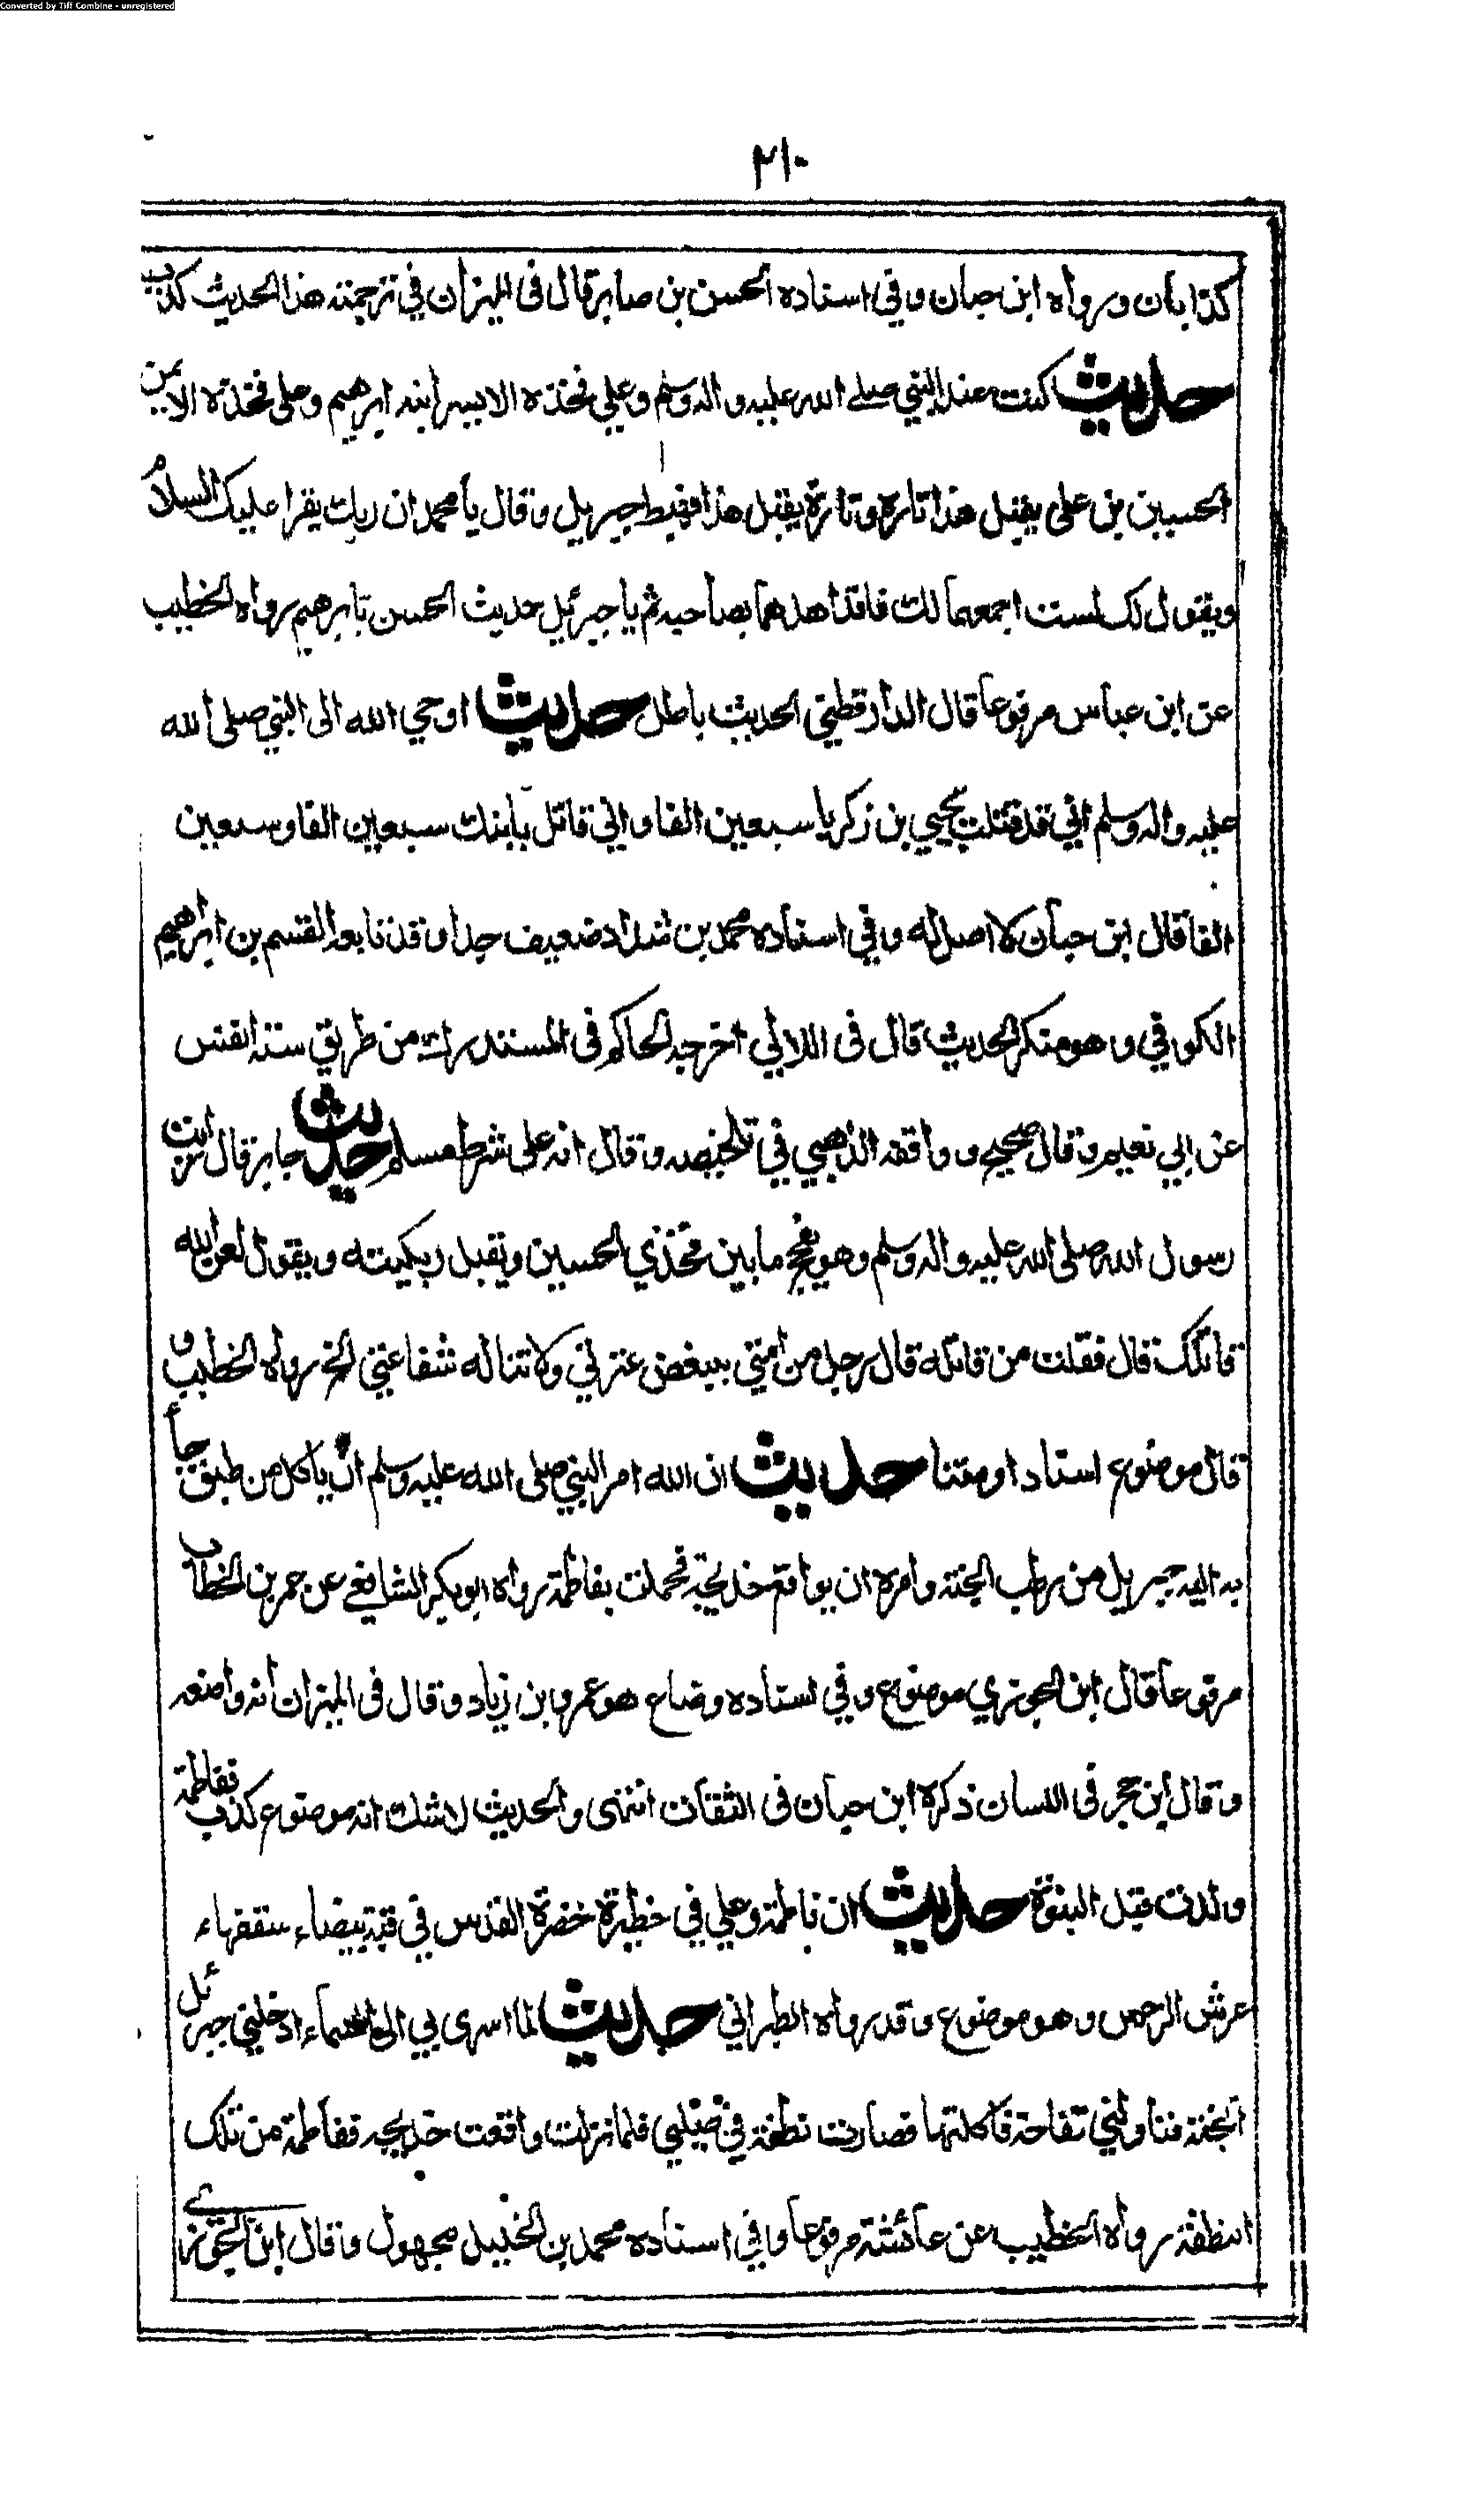 Converted by Tiff Combine - unregistered
٢١٠
كذابان ورواه ابن حبان وفي اسناده الحسن بن صابر قال فى الميزان في ترجمته هذا الحديث كذب
حديث كنت عند النبي صلے الله عليه واله وسلم وعلي فخذه الايسر ابنه ابرهيم وعلى فخذه الايمن
الحسين بن على يقبل هذا تارة وتارة يقبل هذا فهبط جبريل وقال يا محمد ان ربك يقرا عليك السلام
ويقول لك لست اجمعهما لك فافد احدهما بصاحبه ثم يا جبرئيل حديث الحسن بابرهيم رواه الخطيب
عن ابن عباس مرفوعا قال الدارقطني الحديث باطل حديث اوحي الله الى النبي صلى الله
عليه واله وسلم اني قد قتلت بيحيي بن زكريا سبعين الفا واني قاتل بابنك سبعين الفا وسبعين
الفا قال ابن حبان لا اصل له وفي اسناده محمد بن شداد ضعيف جدا وقد تابعه القسم بن ابراهيم
الكوفي وهو منكر الحديث قال فى اللالي اخرجه الحاكم فى المستدرك من طريق ستة انفس
عن ابي نعيم وقال صحيح ووافقه الذهبي في تلخيصه وقال انه على شرط مسلم حديث جابر قال رايت
رسول الله صلى الله عليه واله وسلم وهو يفحج ما بين فخذي الحسين ويقبل زبيبته ويقول لعن الله
قاتلك قال فقلت من قاتله قال رجل من امتي يبغض عترتي ولا تناله شفاعتي الخ رواه الخطيب و
قال موضوع اسنادا ومتنا حديث ان الله امر النبي صلى الله عليه وسلم ان ياكل من طبق جاء
به اليه جبريل من رطب الجنة وامره ان يواقع خديجة فحملت بفاطمة رواه ابو بكر الشافعي عن عمر بن الخطاب
مرفوعا قال ابن الجوزي موضوع وفي اسناده وضاع هو عمرو بن زياد وقال فى الميزان انه واضعه
وقال ابن حجر فى اللسان ذكره ابن حبان فى الثقات انتهى والحديث لا شك انه موضوع كذب ففاطمة
ولدت قبل النبوة حديث ان فاطمة وعلي في خطيرة خضرة القدس في قبة بيضاء سقفها
عرش الرحمن وهو موضوع وقد رواه الطبراني حديث لما اسرى بي الى السماء ادخلني جبرئل
الجنة فناولني تفاحة فاكلتها فصارت نطفة في صلبي فلما نزلت واقعت خديجه ففاطمة من تلك
النطفة رواه الخطيب عن عائشة مرفوعا وفي اسناده محمد بن الخليل مجهول وقال ابن الجوزي